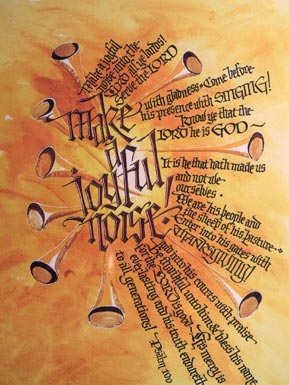 Make a joyful
noise into the
LORD all ye lands!
Serve the LORD
with gladness • Come before
his presence with SINGING!
know ye that the
LORD he is GOD ~
Make
a
joyful
noise!
It is he that hath made us
and not we
ourselves •
We are his people and
the sheep of his pasture ~
Enter into his gates with
THANKSGIVING!
and into his courts with praise
be thankful unto him & bless his name
for the LORD is good ~ His mercy is
everlasting and his truth endureth
to all generations! Psalm 100